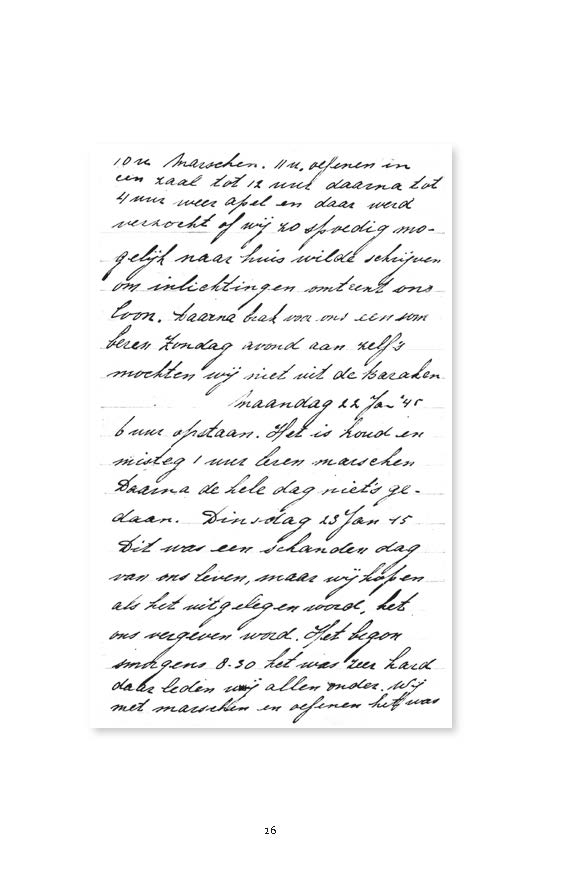 10 u Marschen. 11 u, oefenen in
een zaal tot 12 uur daarna tot
4 uur weer apel en daar werd
verzocht of wij zo spoedig mo-
gelijk naar huis wilde schrijven
om inlichtingen omtrent ons
loon. Daarna brak voor ons een som
beren Zondag avond aan zelfs
mochten wij niet uit de Baraken
Maandag 22 Jan '45
6 uur opstaan. Het is koud en
misteg 1 uur leren marschen
Daarna de hele dag niets ge-
daan. Dinsdag 23 Jan 45
Dit was een schanden dag
van ons leven, maar wij hopen
als het uitgelegen word, het
ons vergeven word. Het begon
smorgens 8.30 het was zeer hard
daar leden wij allen onder. Wij
met marschen en oefenen het was
26